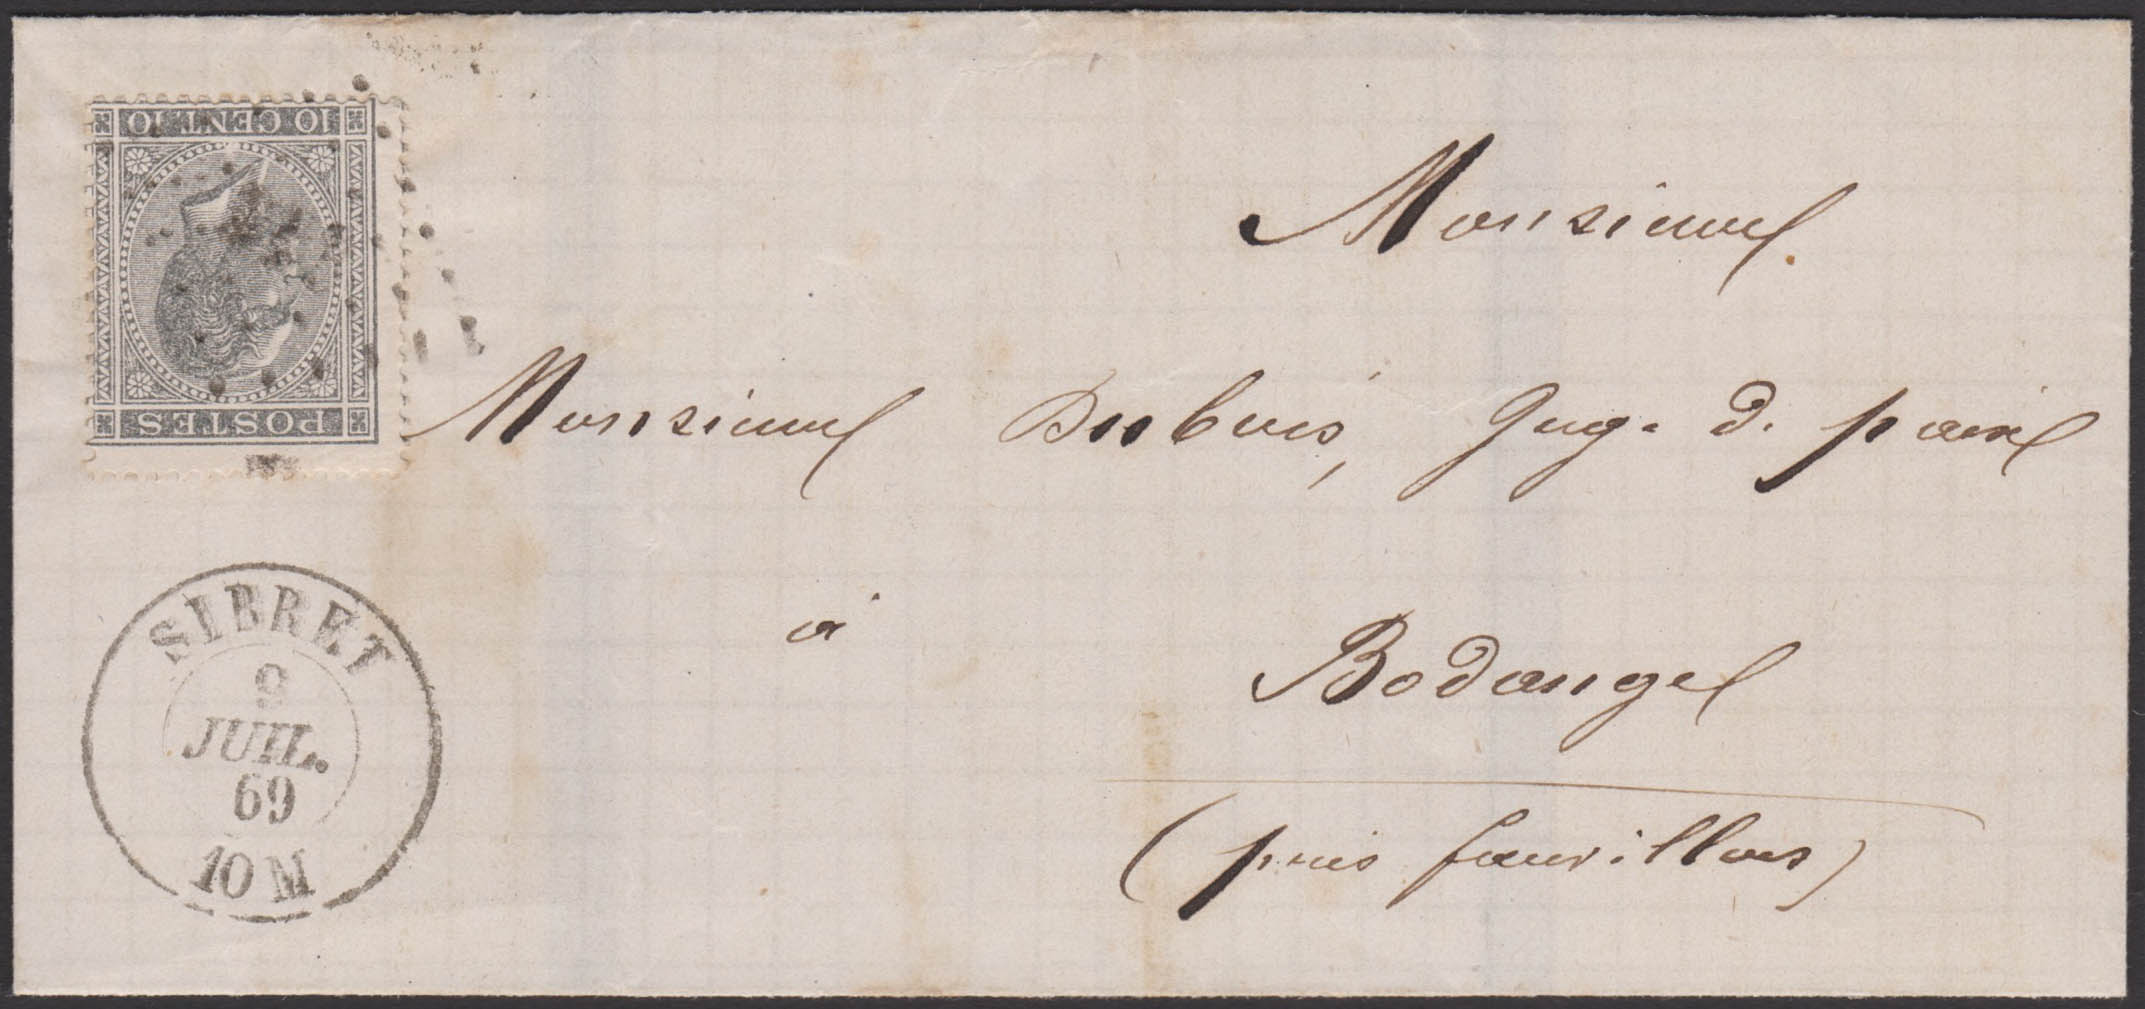 10 CENT. 10
POSTES
Monsieur
Monsieur Dubois, Juge d. paix
à
Bodange
(près fauvillers)
SIBRET
9
JUIL.
69
10 M